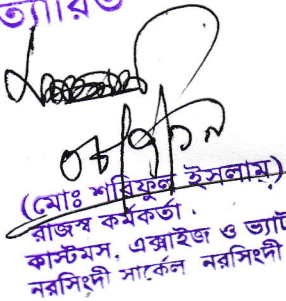 (মোঃ শরিফুল ইসলাম)
রাজস্ব কর্মকর্তা
কাস্টমস, এক্সাইজ ও ভ্যাট
নরসিংদী সার্কেল নরসিংদী